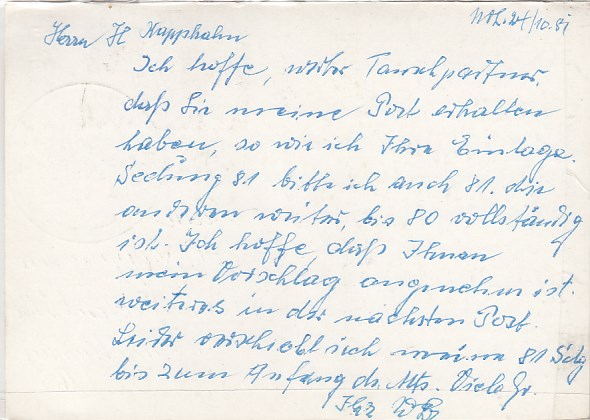 Wbl. 24/10.81
Herrn H Kapphahn
Ich hoffe, werter Tauschpartner,
daß Sie meine Post erhalten
haben, so wie ich Ihre Eintags.
Sendung 81 bitte ich auch 81. die
anderen weiter, bis 80 vollständig
ist. Ich hoffe, daß Ihnen
mein Vorschlag angenehm ist.
weiteres in der nächsten Post.
Leider verschiebt sich meine 81 Sdg
bis zum Anfang ds. Mts. Viele Gr.
Ihr